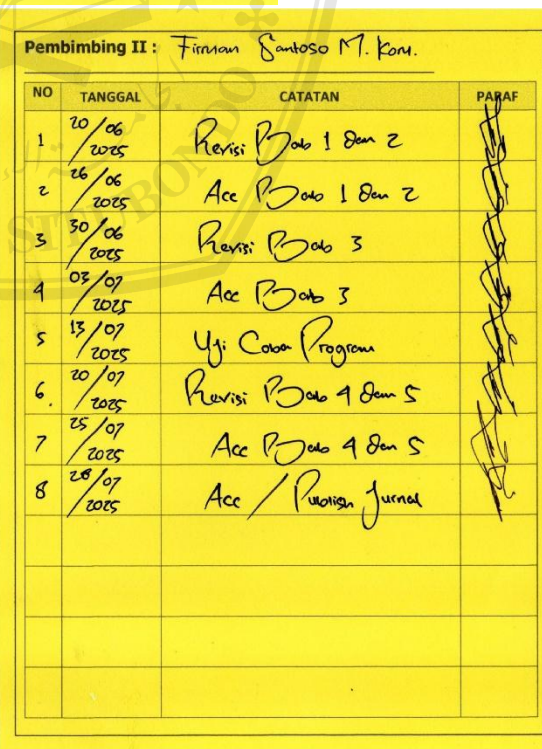 Pembimbing II : Firman Santoso M. Kom.
NO TANGGAL CATATAN PARAF
1 20/06 2025 Revisi Bab 1 dan 2
2 26/06 2025 Acc Bab 1 dan 2
3 30/06 2025 Revisi Bab 3
4 03/07 2025 Acc Bab 3
5 13/07 2025 Uji Coba Program
6. 20/07 2025 Revisi Bab 4 dan 5
7 25/07 2025 Acc Bab 4 dan 5
8 28/07 2025 Acc / Publish Jurnal
SITUBONDO